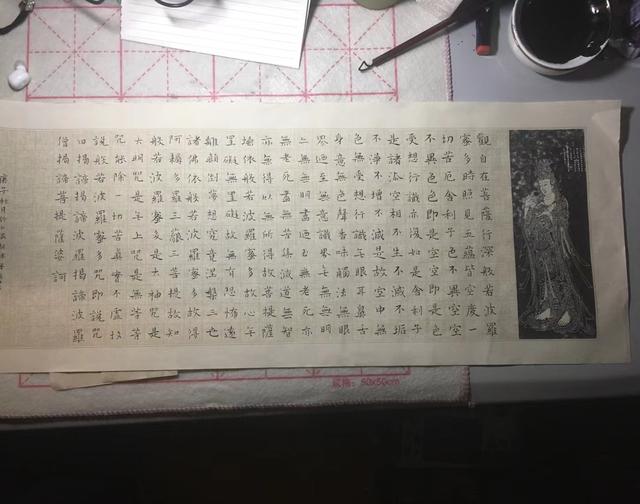 觀自在菩薩行深般若波羅
蜜多時照見五蘊皆空度一
切苦厄舍利子色不異空空
不異色色即是空空即是色
受想行識亦復如是舍利子
是諸法空相不生不滅不垢
不淨不增不減是故空中無
色無受想行識無眼耳鼻舌
身意無色聲香味觸法無眼
界迺至無意識界無無明
亦無無明盡迺至無老死亦
無老死盡無苦集滅道無智
亦無得以無所得故菩提薩
埵依般若波羅蜜多故心無
罣礙無罣礙故無有恐怖遠
離顛倒夢想究竟涅槃三世
諸佛依般若波羅蜜多故得
阿耨多羅三藐三菩提故知
般若波羅蜜多是大神咒是
大明咒是無上咒是無等等
咒能除一切苦真實不虛故
說般若波羅蜜多咒即說咒
曰揭諦揭諦波羅揭諦波羅
僧揭諦菩提薩婆訶
規格：50x50cm